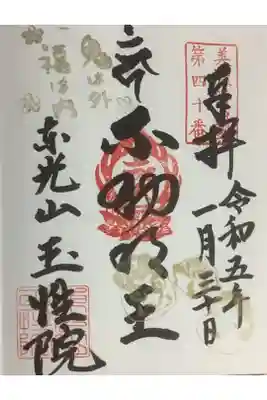 奉拝
令和五年
一月三十日
美濃
第四十番
不動明王
鬼は外
福は内
東光山
玉性院